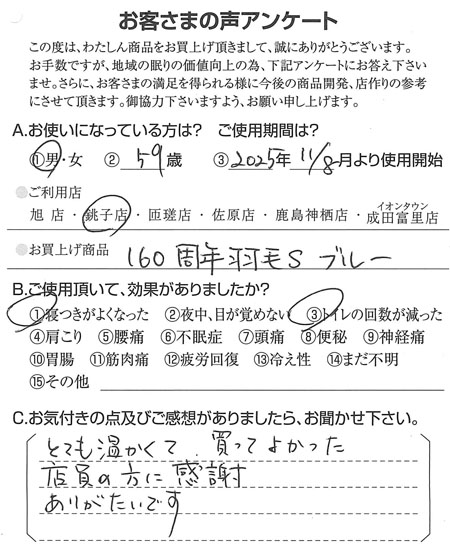 お客さまの声アンケート
この度は、わたしん商品をお買上げ頂きまして、誠にありがとうございます。
お手数ですが、地域の眠りの価値向上の為、下記アンケートにお答え下さい
ませ。さらに、お客さまの満足を得られる様に今後の商品開発、店作りの参考
にさせて頂きます。御協力下さいますよう、お願い申し上げます。
A.お使いになっている方は? ご使用期間は?
①男・女 ② 59歳 ③2025年 11/8月より使用開始
●ご利用店
旭店・銚子店・匝瑳店・佐原店・鹿島神栖店・イオンタウン成田富里店
●お買上げ商品 160周年羽毛S ブルー
B.ご使用頂いて、効果がありましたか?
①寝つきがよくなった ②夜中、目が覚めない ③トイレの回数が減った
④肩こり ⑤腰痛 ⑥不眠症 ⑦頭痛 ⑧便秘 ⑨神経痛
⑩胃腸 ⑪筋肉痛 ⑫疲労回復 ⑬冷え性 ⑭まだ不明
⑮その他
C.お気付きの点及びご感想がありましたら、お聞かせ下さい。
とても温かくて 買ってよかった
店員の方に感謝
ありがたいです